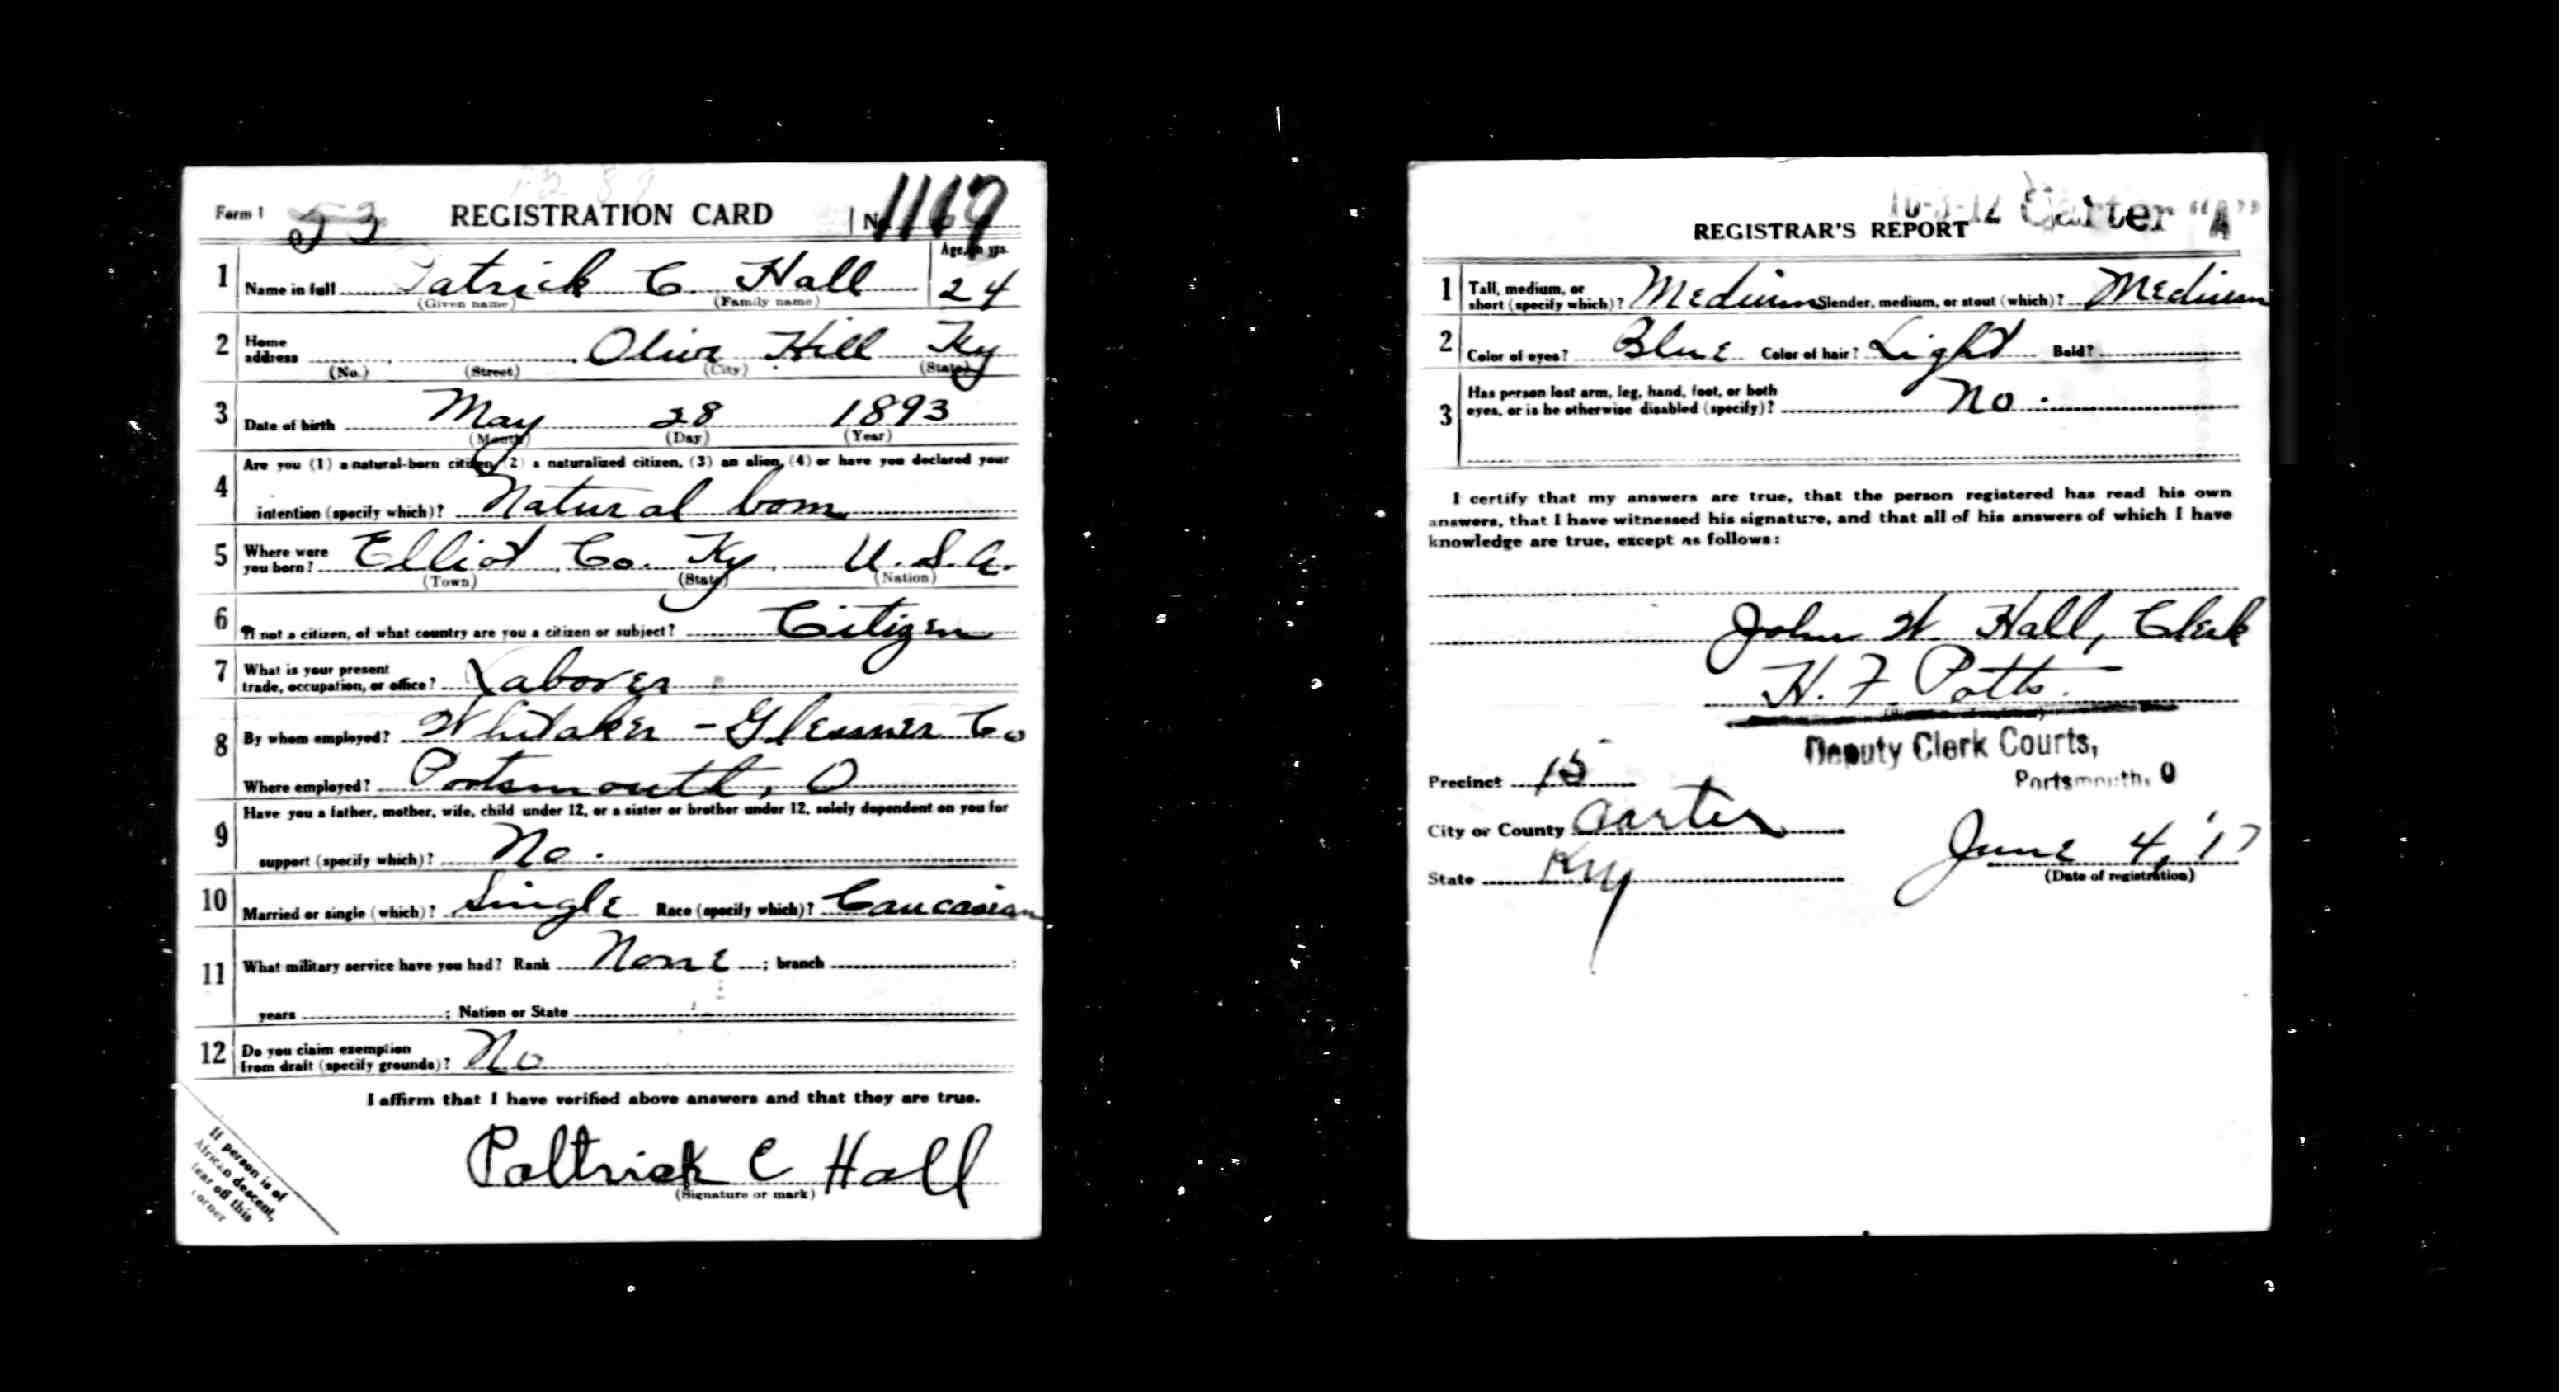 Form 1 53 REGISTRATION CARD No. 1169
1 Name in full Patrick C. Hall Age, in yrs. 24
(Given name) (Family name)
2 Home address Olive Hill Ky
(No.) (Street) (City) (State)
3 Date of birth May 28 1893
(Month) (Day) (Year)
4 Are you (1) a natural-born citizen, (2) a naturalized citizen, (3) an alien, (4) or have you declared your
intention (specify which)? Natural born
5 Where were you born? Elliot Co. Ky U.S.A.
(Town) (State) (Nation)
6 If not a citizen, of what country are you a citizen or subject? Citizen
7 What is your present trade, occupation, or office? Laborer
8 By whom employed? Whitaker-Glessner Co
Where employed? Portsmouth, O
9 Have you a father, mother, wife, child under 12, or a sister or brother under 12, solely dependent on you for
support (specify which)? No.
10 Married or single (which)? Single Race (specify which)? Caucasian
11 What military service have you had? Rank None ; branch ;
years ; Nation or State
12 Do you claim exemption from draft (specify grounds)? No
I affirm that I have verified above answers and that they are true.
Paltrick C Hall
(Signature or mark)
If person is of
African descent,
tear off this
corner
Carter "A"
REGISTRAR'S REPORT
1 Tall, medium, or short (specify which)? Medium Slender, medium, or stout (which)? Medium
2 Color of eyes? Blue Color of hair? Light Bald?
3 Has person lost arm, leg, hand, foot, or both
eyes, or is he otherwise disabled (specify)? No.
I certify that my answers are true, that the person registered has read his own
answers, that I have witnessed his signature, and that all of his answers of which I have
knowledge are true, except as follows:
John W. Hall, Clerk
H. F. Potts.
Deputy Clerk Courts,
Portsmouth, O
Precinct 15
City or County Carter
State Ky
June 4, '17
(Date of registration)